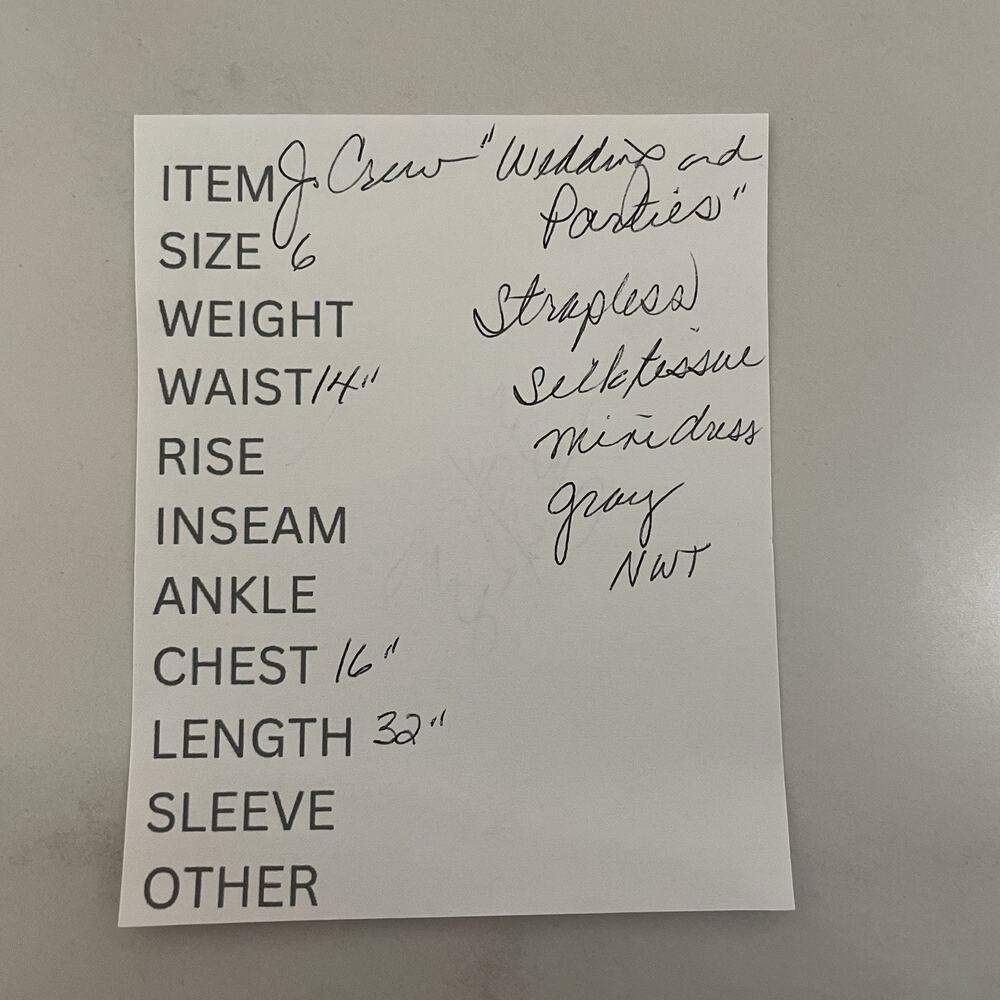 ITEM J. Crew "Wedding and
Parties"
SIZE 6
WEIGHT
Strapless
WAIST 14"
silk tissue
RISE
mini dress
INSEAM
gray
ANKLE
NWT
CHEST 16"
LENGTH 32"
SLEEVE
OTHER